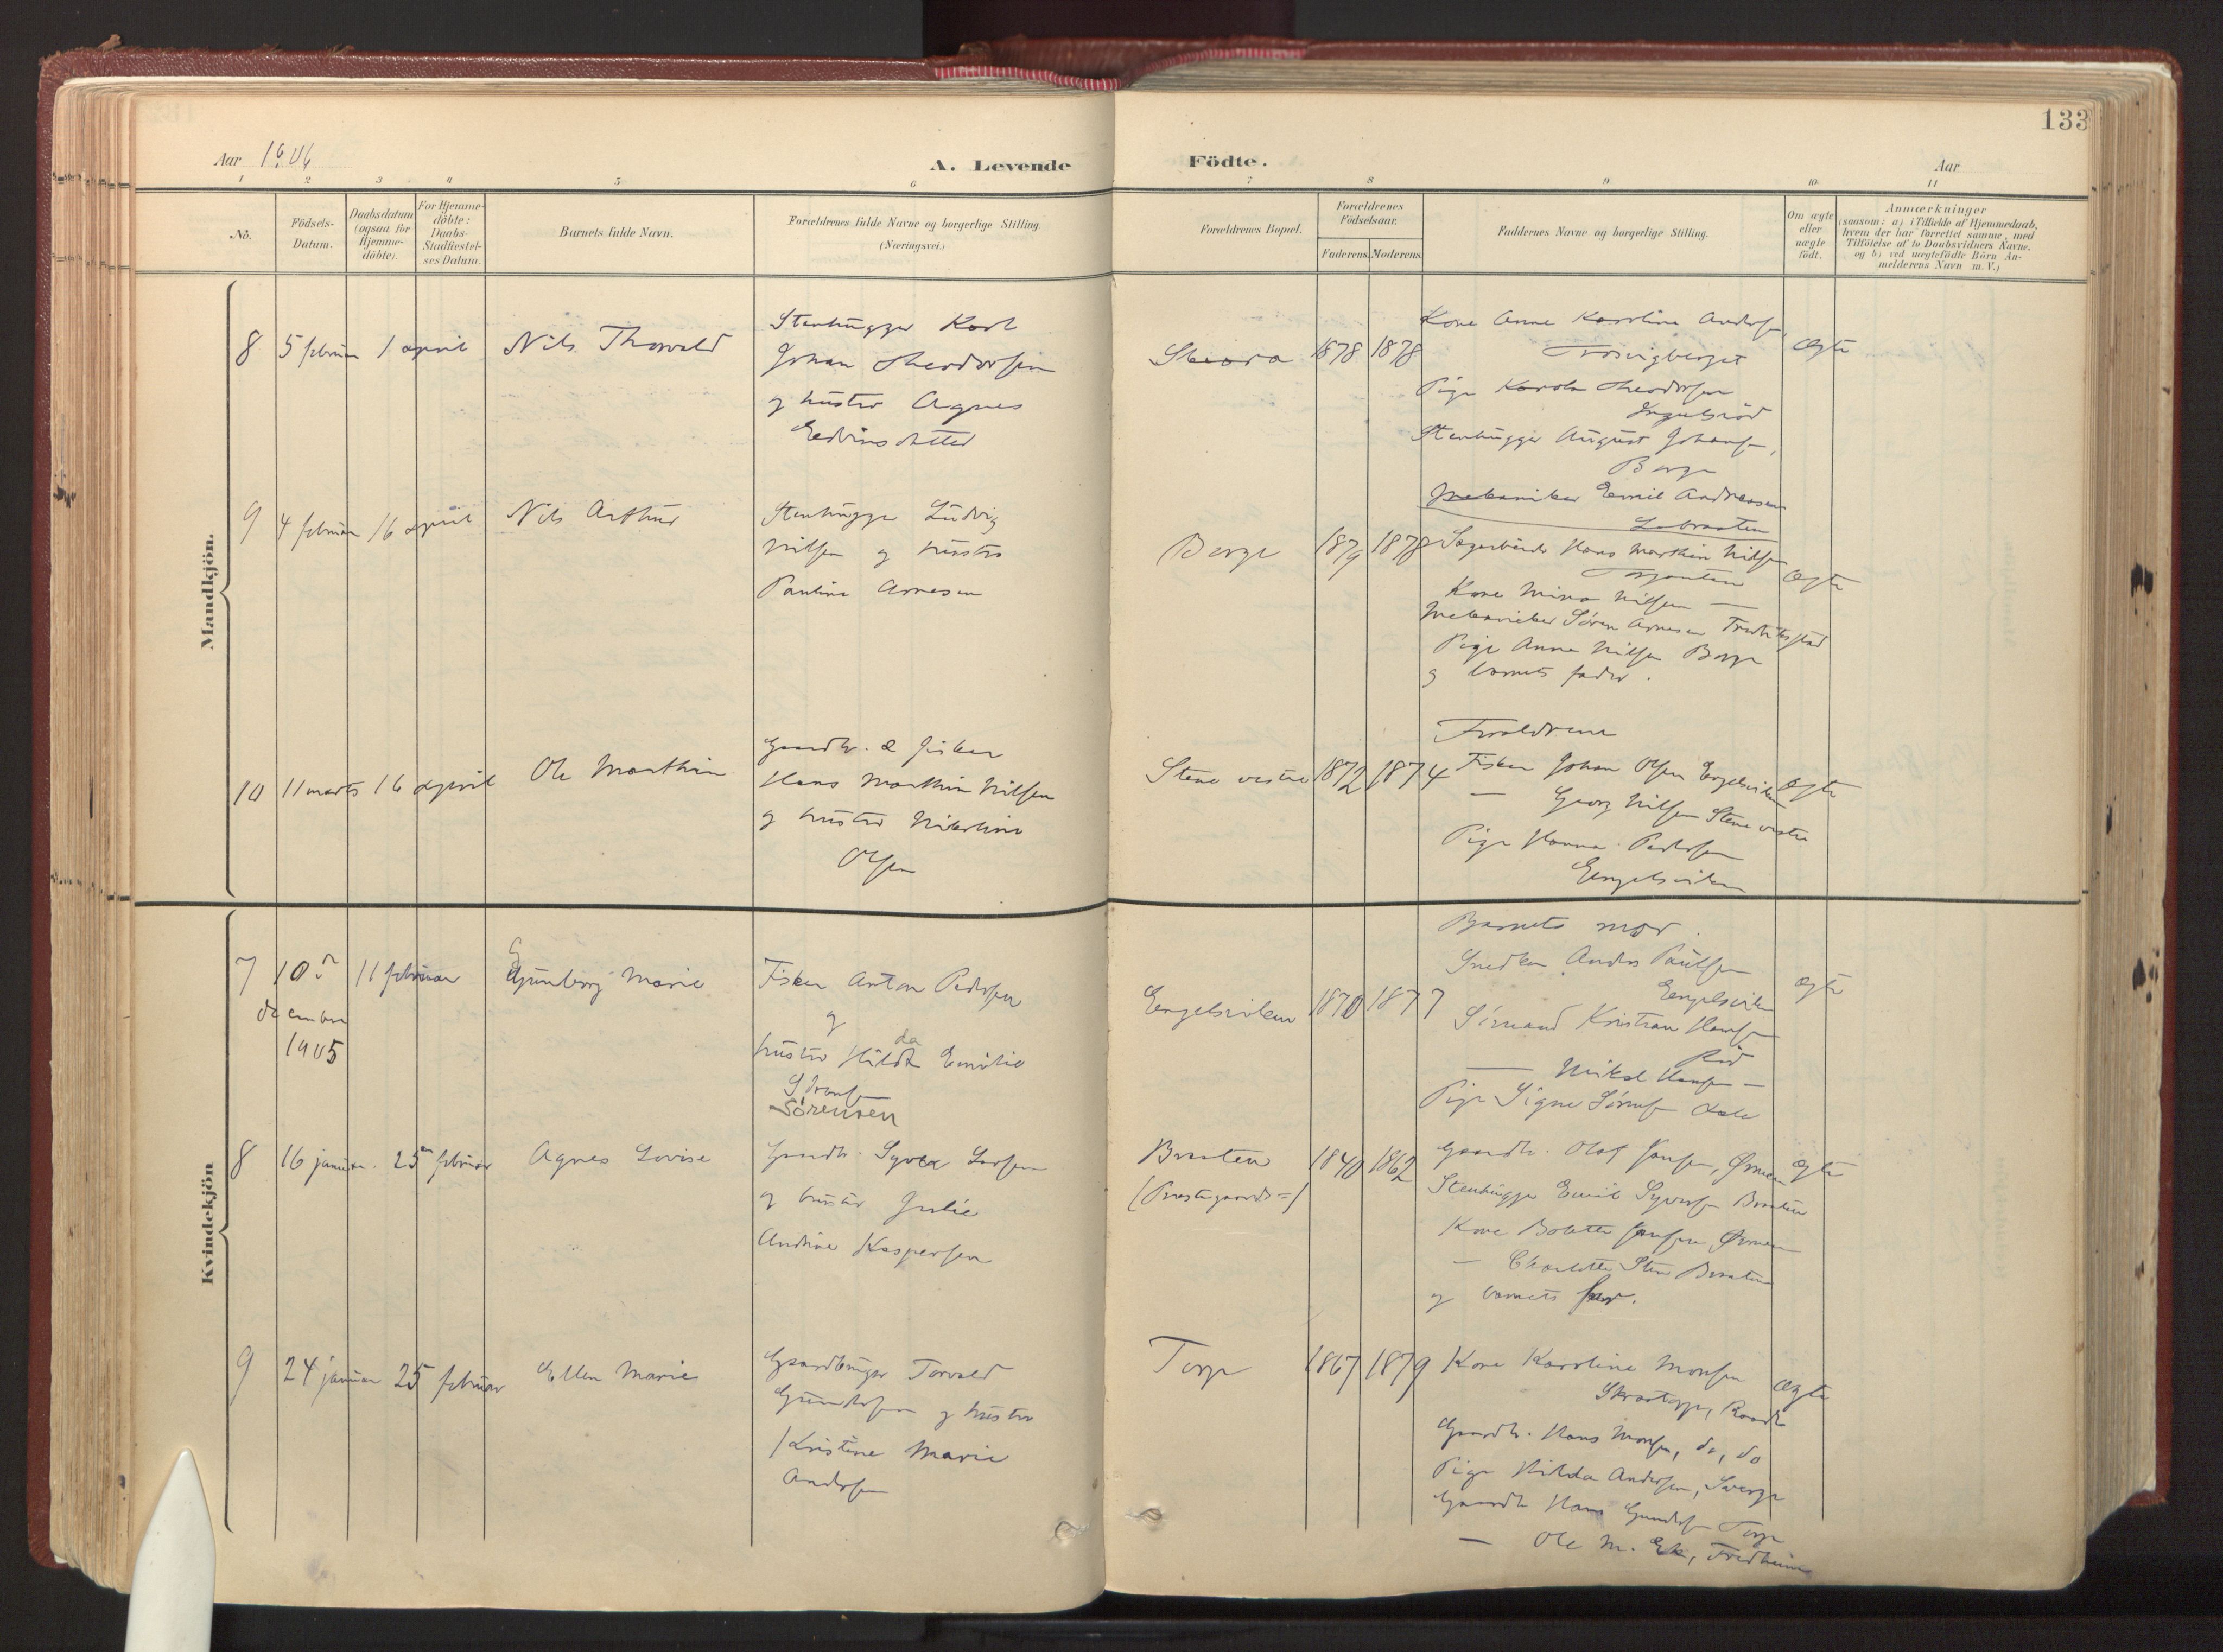 133
Aar 1906
A. Levende
Födte.
Aar
1 2 3 4 5 6 7 8 9 10 11
No.
Födsels-
Datum.
Daabsdatum
(ogsaa for
Hjemme-
döbte).
For Hjemme-
döbte:
Daabs-
Stadfæstel-
ses Datum.
Barnets fulde Navn.
Forældrenes fulde Navne og borgerlige Stilling.
(Næringsvei.)
Forældrenes Bopæl.
Forældrenes
Födselsaar.
Faderens. Moderens.
Faddernes Navne og borgerlige Stilling.
Om ægte
eller
uægte
födt.
Anmærkninger
(saasom: a) i Tilfælde af Hjemmedaab,
hvem der har forrettet samme, med
Tilföielse af to Daabsvidners Navne.
og b) ved uægtefödte Börn An-
melderens Navn m. V.)
Mandkjön.
8 5 februar 1 april Nils Thorvald
Stenhugger Karl
Johan Theodorsen
og hustru Agnes
Edvinsdatter
1878 1878
Kone Anne Karoline Andersen,
Trosvigberget
Pige Karola Theodorsen
Ingulsröd
Stenhugger August Johansen,
Borge
Mekaniker Emil Andreassen
Labraaten
Ægte
9 4 februar 16 april Nils Arthur
Stenhugger Ludvig
Nilsen og hustru
Pauline Arnesen
Borge 1879 1878
Hans Marthin Nilsen
Kone Mina Nilsen —
Mekaniker Sören Arnesen Fredrikstad
Pige Anna Nilsen Borge
og barnets fader.
Ægte
10 11 marts 16 april Ole Marthin
Gaardbr. & fisker
Hans Marthin Nilsen
og hustru Nikoline
Olsen
Stene vestre 1872 1874
Forældrene
Fisker Johan Olsen Engelsviken
— Georg Nilsen Stene vestre
Pige Hanna Pedersen
Engelsviken
Ægte
Kvindekjön
7 10de december 1905 11 februar Gunborg Marie
Fisker Anton Pedersen
og
hustru Hilda Emilie
da
Sörensen
Sörensen
Engelsviken 1870 1877
Barnets mor.
Snedker Anders Paulsen
Engelsviken
Sömand Kristian Hansen
Röd
— Mikal Hansen —
Pige Signe Sörensen Dale
Ægte
8 16 januar. 25 februar Agnes Lovise
Gaardbr. Syver Larsen
og hustru Julie
Andrine Kaspersen
Braaten
(Præstegaards=)
1840 1862
Gaardbr. Olaf Jansen, Ørmen
Stenhugger Emil Syversen Braaten
Kone Bolette Jansen, Ørmen
— Charlotte Sten Braaten
og barnets far.
Ægte
9 24 januar 25 februar Ellen Marie
Gaardbruger Torvald
Gundersen og hustru
Kristine Marie
Andersen
Torp 1867 1879
Kone Karoline Monsen
Skraatorp, Raade
Gaardbr. Hans Monsen, do, do
Pige Hilda Andersen, Sverige
Gaardbr Hans Gundersen Torp
— Ole M. Ek, Fredheim
Ægte